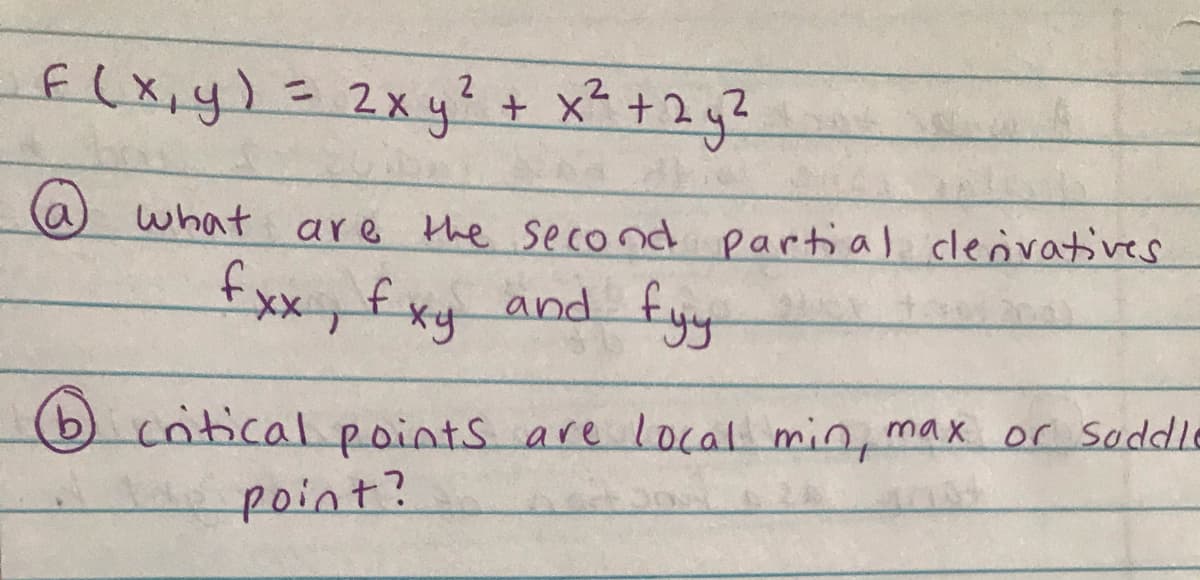 F(x,y) = 2xy² + x² + 2y²
ⓐ what are the second partial derivatives
fxx, fxy and fyy
ⓑ critical points are local min, max or saddle
point?